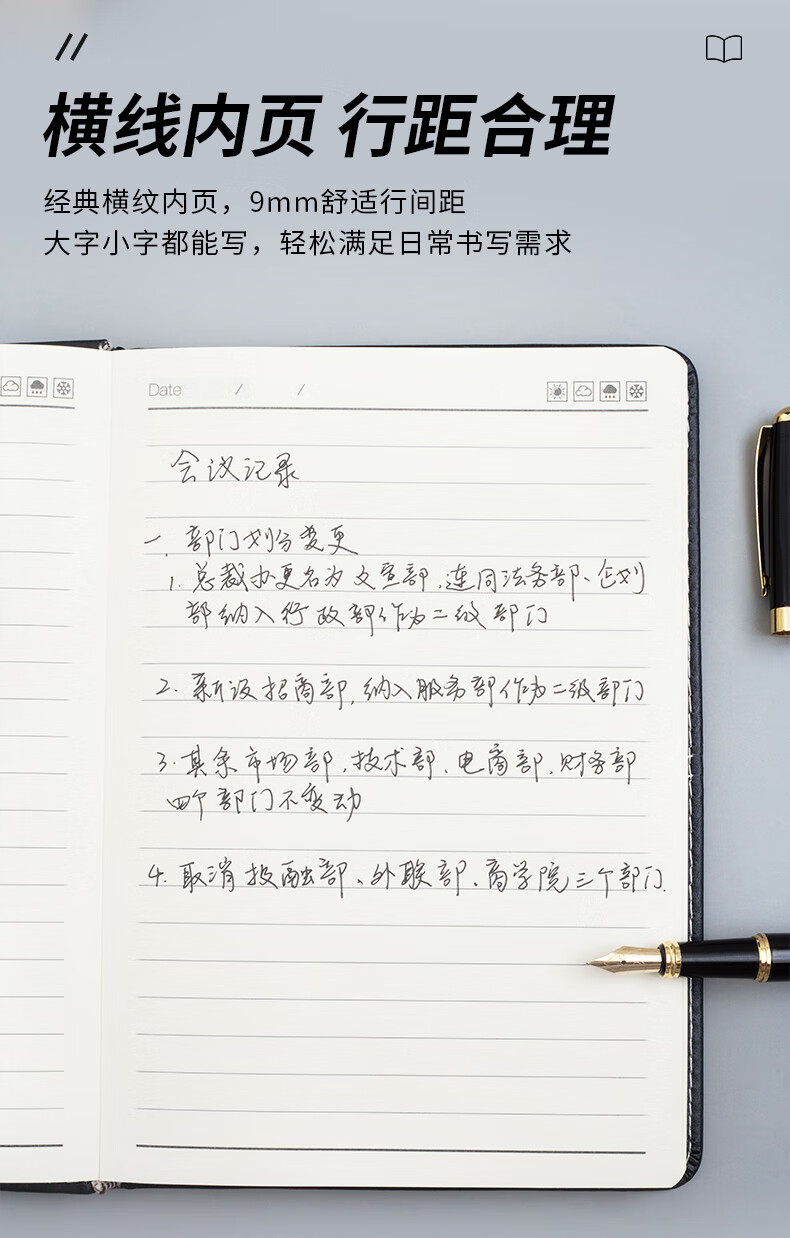 横线内页 行距合理
经典横纹内页，9mm舒适行间距
大字小字都能写，轻松满足日常书写需求
Date / /
会议记录
一、部门划分变更
1. 总裁办更名为文宣部，连同法务部、企划
部纳入行政部作为二级部门
2. 新设招商部，纳入服务部作为二级部门
3. 其余市场部、技术部、电商部、财务部
四个部门不变动
4. 取消投融部、外联部、商学院三个部门.